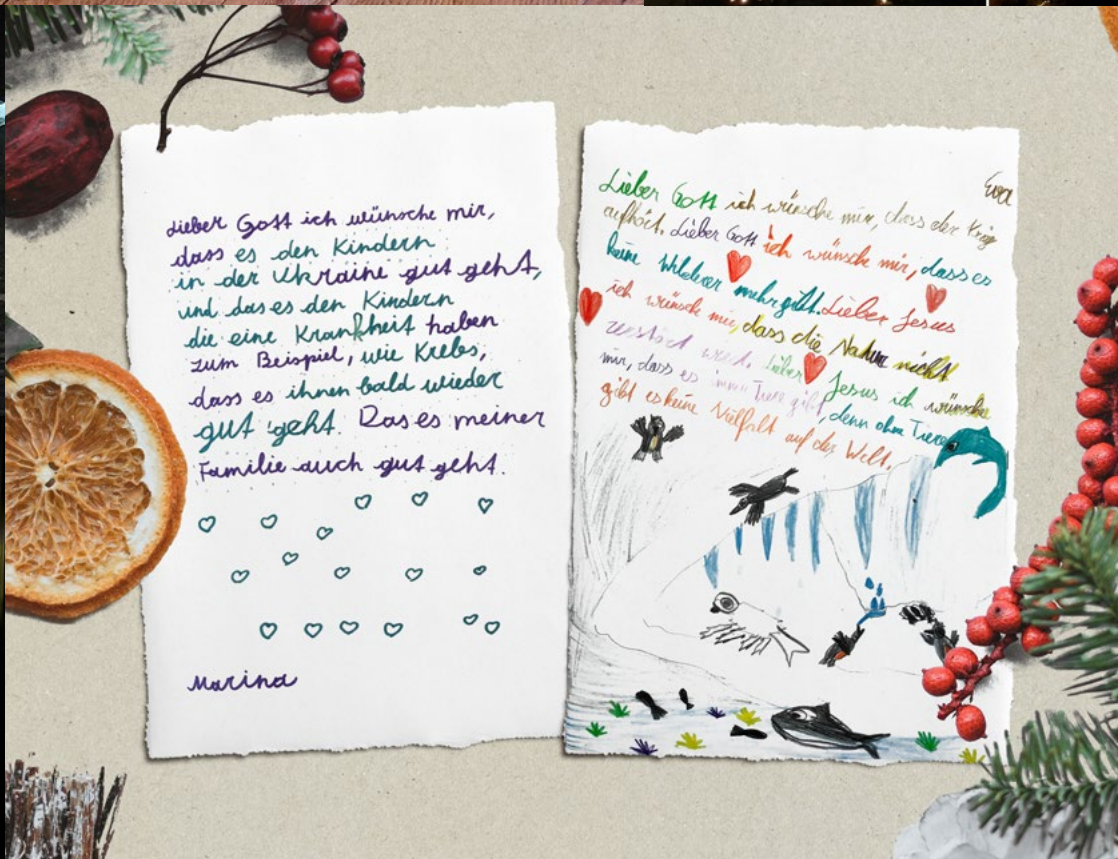 Lieber Gott ich wünsche mir,
dass es den Kindern
in der Ukraine gut geht,
und das es den Kindern
die eine Krankheit haben
zum Beispiel, wie Krebs,
dass es ihnen bald wieder
gut geht. Das es meiner
Familie auch gut geht.
Marina
Eva
Lieber Gott ich wünsche mir, dass der Krieg
aufhört. Lieber Gott ich wünsche mir, dass es
keine Wilderer mehr gibt. Lieber Jesus
ich wünsche mir, dass die Natur nicht
zerstört wird. Lieber Jesus ich wünsche
mir, dass es immer Tiere gibt, denn ohne Tiere
gibt es keine Vielfalt auf der Welt.